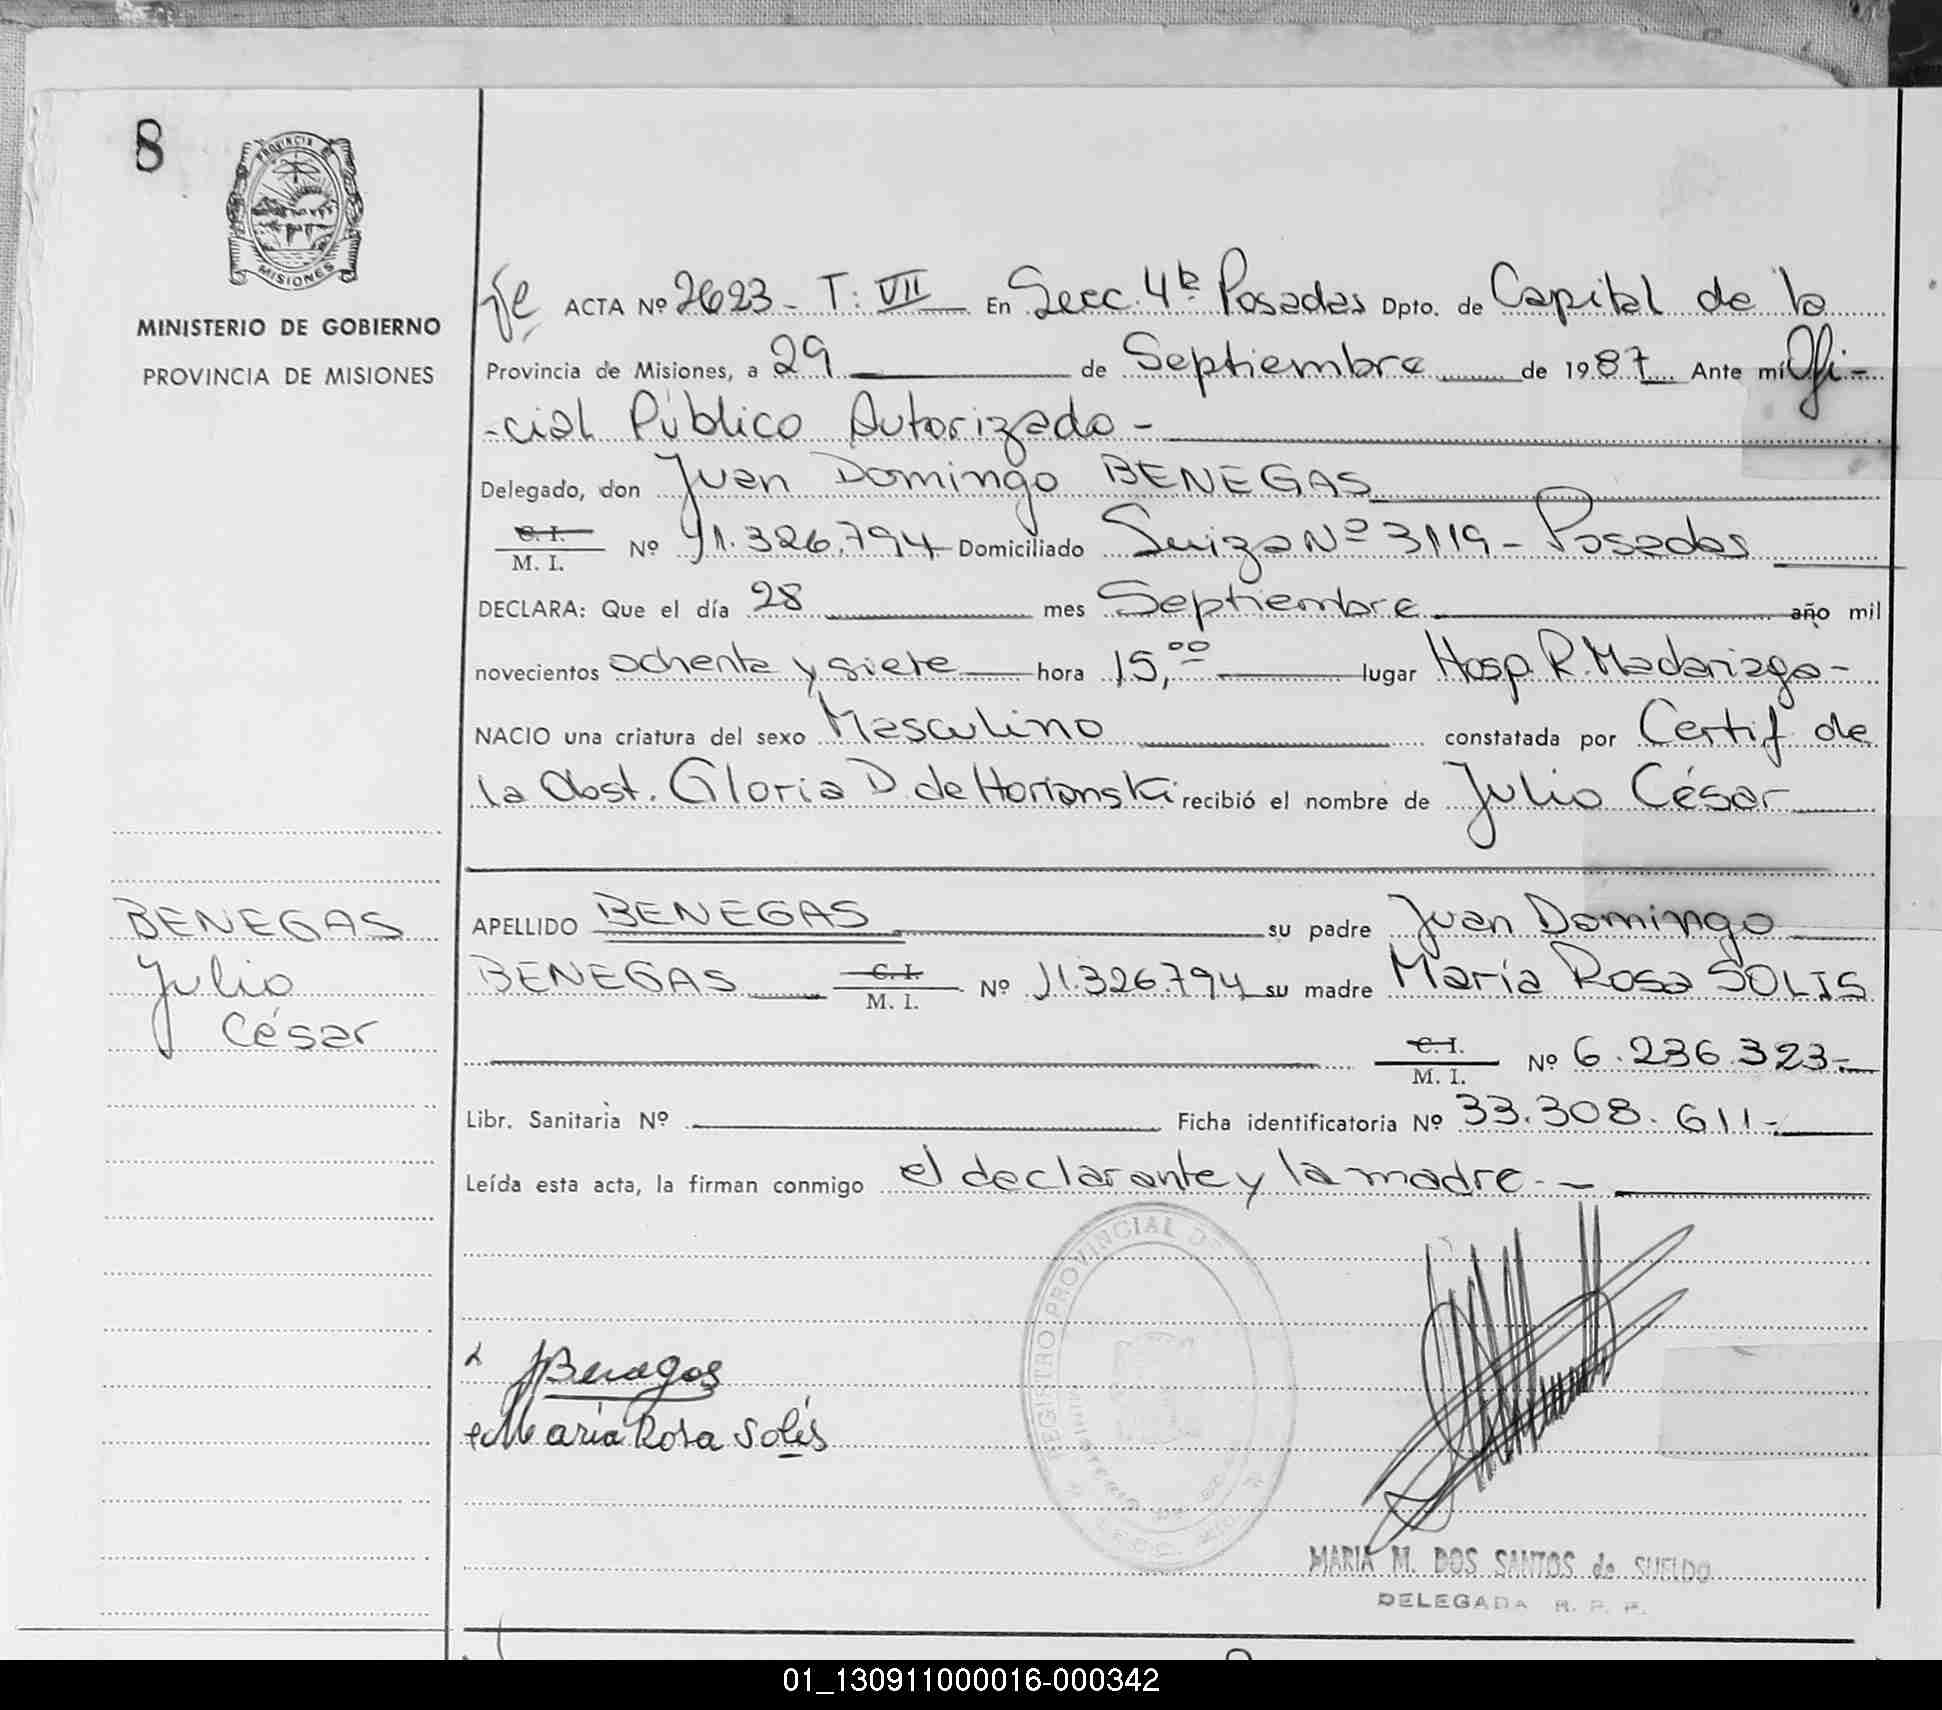 8
PROVINCIA DE
MISIONES
MINISTERIO DE GOBIERNO
PROVINCIA DE MISIONES
ACTA Nº 2623 - T: VII En Secc. 4ta Posadas Dpto. de Capital de la
Provincia de Misiones, a 29 de Septiembre de 1987 Ante mí Ofi-
-cial Público Autorizado -
Delegado, don Juan Domingo BENEGAS
C. I.
M. I. Nº 11.326.794 Domiciliado Suiza Nº 3119 - Posadas
DECLARA: Que el día 28 mes Septiembre año mil
novecientos ochenta y siete hora 15,00 lugar Hosp. R. Madariaga -
NACIO una criatura del sexo Masculino constatada por Certif de
la Obst. Gloria D. de Horianski recibió el nombre de Julio César
APELLIDO BENEGAS su padre Juan Domingo
BENEGAS C. I. M. I. Nº 11.326.794 su madre María Rosa SOLIS
C. I.
M. I. Nº 6.236.323.-
Libr. Sanitaria Nº Ficha identificatoria Nº 33.308.611-
Leída esta acta, la firman conmigo el declarante y la madre. -
BENEGAS
Julio
César
REGISTRO PROVINCIAL DE
JBenegas
María Rosa Solís
MARIA M. DOS SANTOS de SUELDO
DELEGADA R. P. P.
01_130911000016-000342